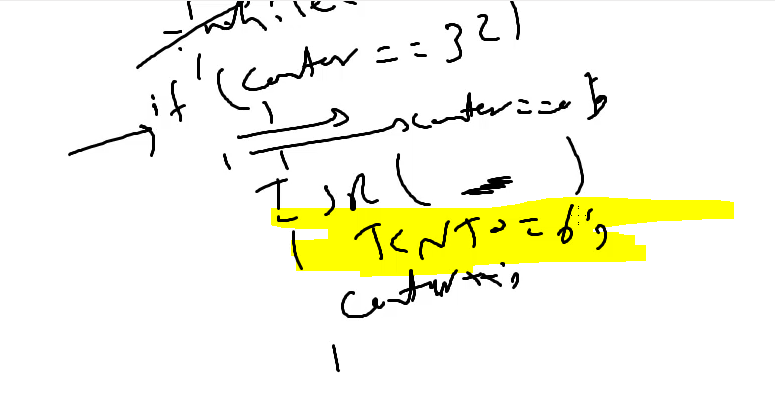 while
if (counter == 32)
counter == 0
ISR ( )
TCNT0 = 6;
counter++;